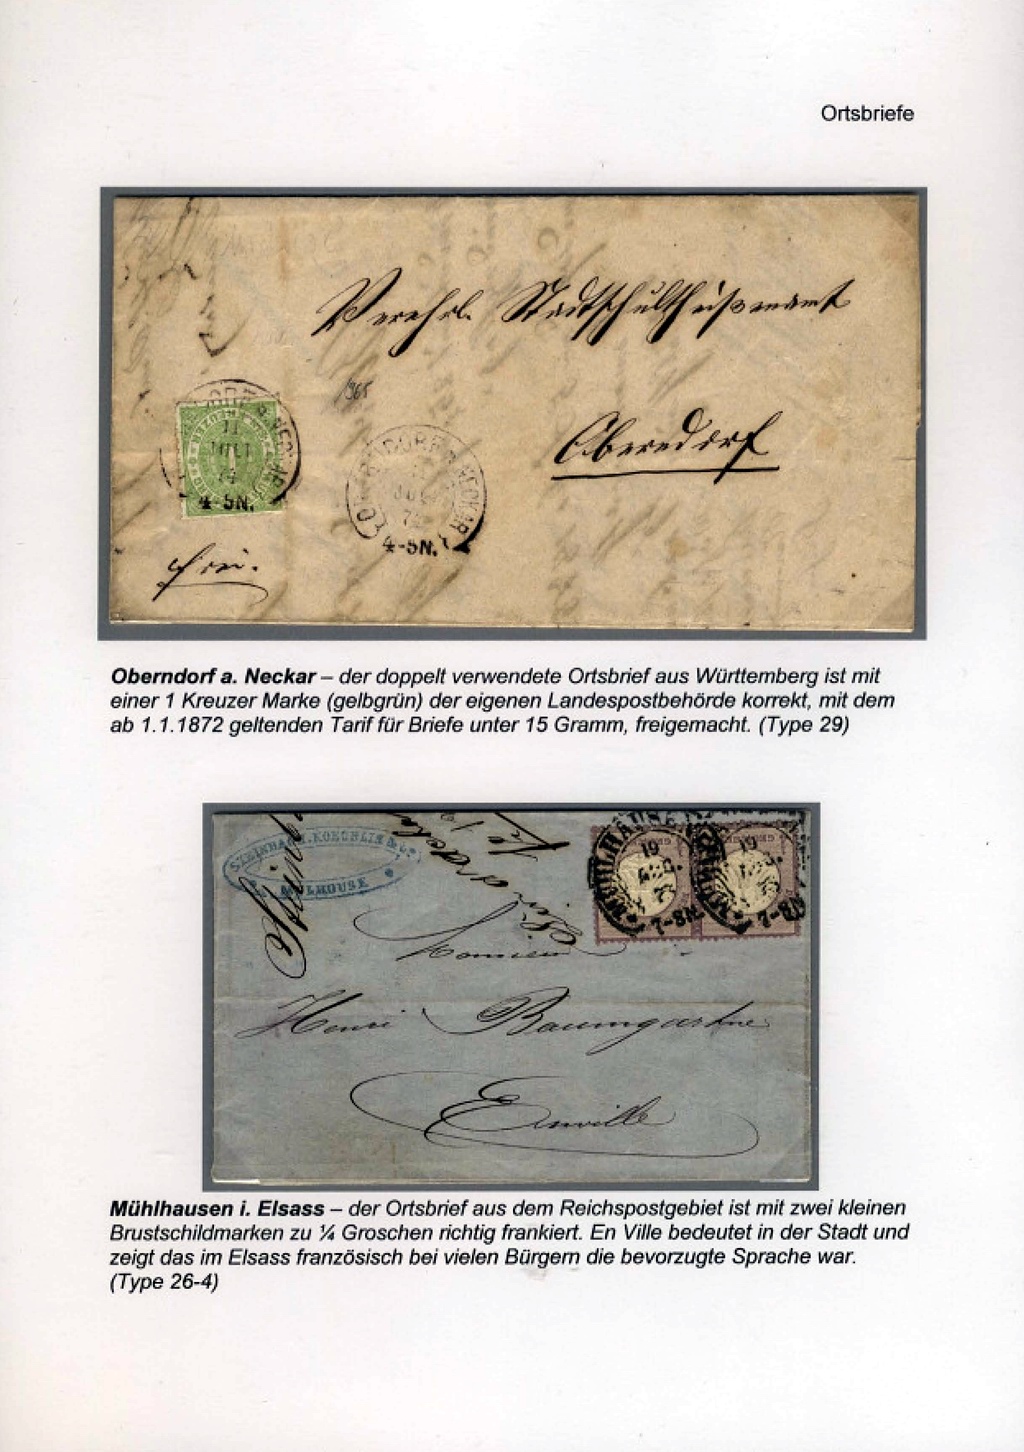 Ortsbriefe
Verehrl. Stadtschultheißenamt
1965
Oberndorf
4-5N.
OBERNDORF a. NECKAR
11
JUL
4-5N.
frei.
Oberndorf a. Neckar – der doppelt verwendete Ortsbrief aus Württemberg ist mit
einer 1 Kreuzer Marke (gelbgrün) der eigenen Landespostbehörde korrekt, mit dem
ab 1.1.1872 geltenden Tarif für Briefe unter 15 Gramm, freigemacht. (Type 29)
STEINBACH, KOECHLIN & Cie
MULHOUSE
MÜHLHAUSEN
19
7-8N
19
7-8N
Monsieur
Henri Baumgartner
En ville
Mühlhausen i. Elsass – der Ortsbrief aus dem Reichspostgebiet ist mit zwei kleinen
Brustschildmarken zu ¼ Groschen richtig frankiert. En Ville bedeutet in der Stadt und
zeigt das im Elsass französisch bei vielen Bürgern die bevorzugte Sprache war.
(Type 26-4)